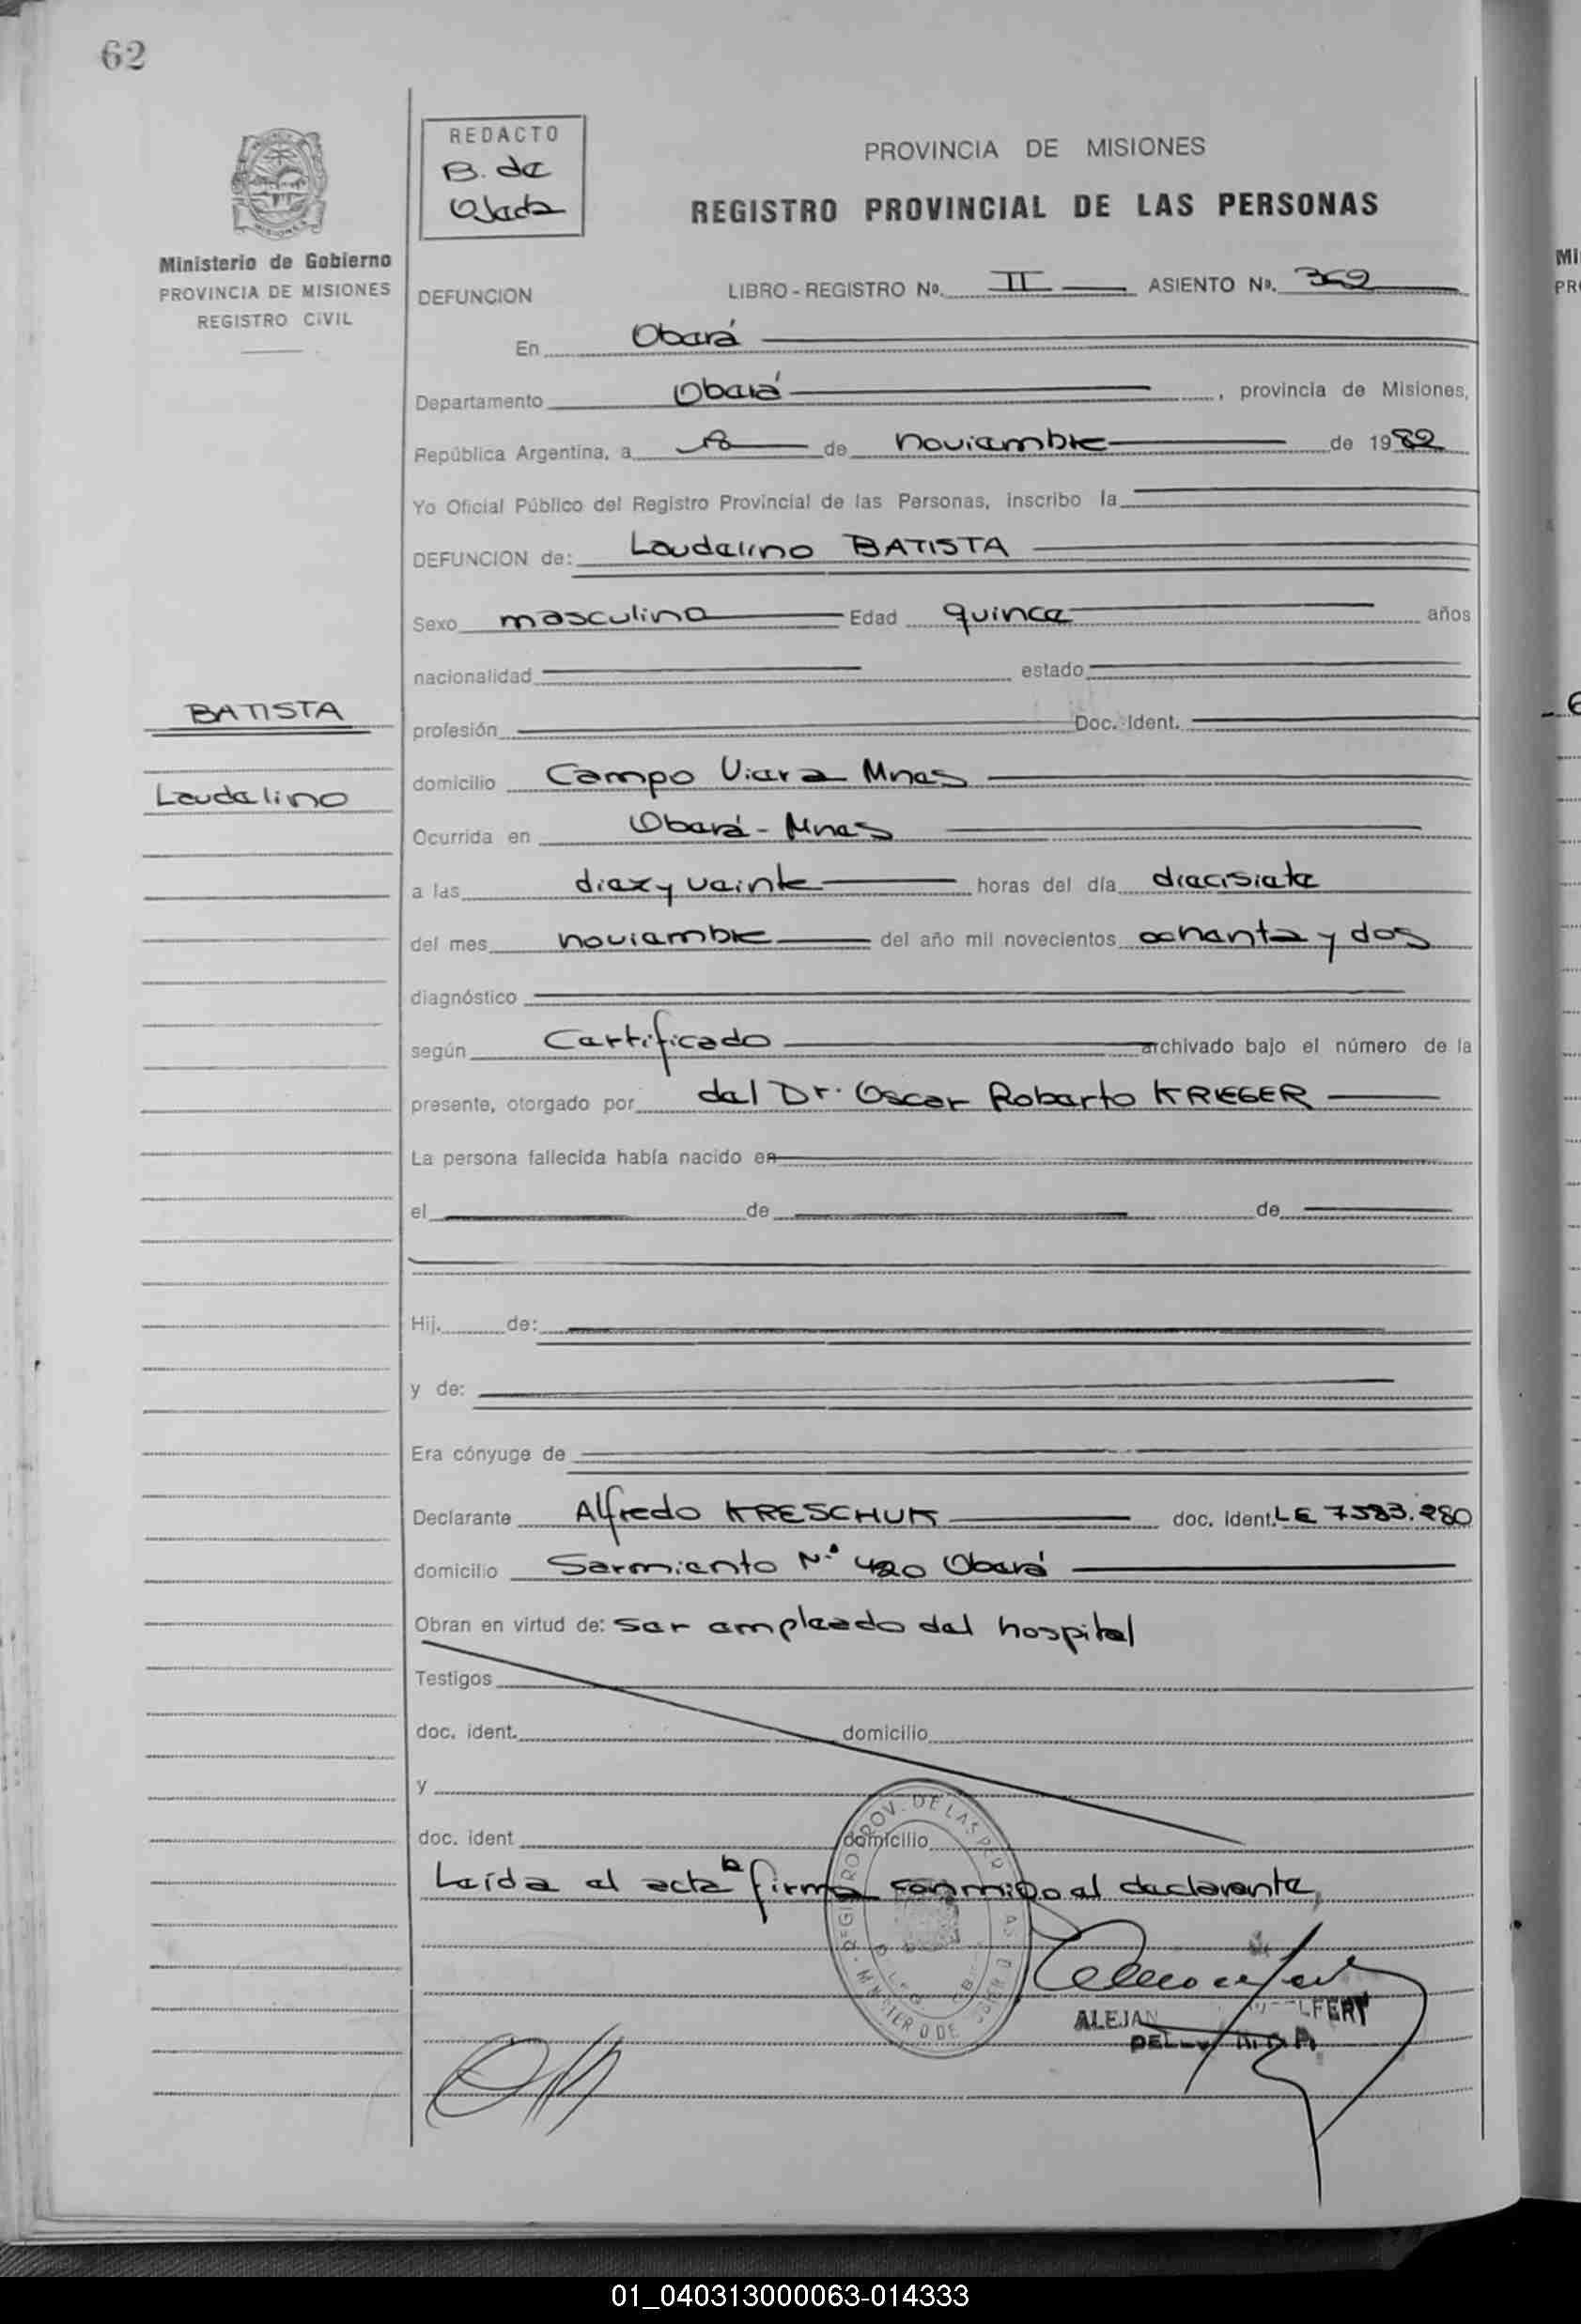 62
REDACTO
B. de
Ojeda
PROVINCIA DE MISIONES
REGISTRO PROVINCIAL DE LAS PERSONAS
MISIONES
Ministerio de Gobierno
PROVINCIA DE MISIONES
REGISTRO CIVIL
DEFUNCION LIBRO - REGISTRO Nº. II ASIENTO Nº. 369
En Oberá
Departamento Oberá, provincia de Misiones,
República Argentina, a de noviembre de 1982
Yo Oficial Público del Registro Provincial de las Personas, inscribo la
DEFUNCION de: Laudelino BATISTA
Sexo masculino Edad quince años
nacionalidad estado
BATISTA
profesión Doc. Ident.
Laudelino
domicilio Campo Viera Mnes
Ocurrida en Oberá - Mnes
a las diez y veinte horas del día diecisiete
del mes noviembre del año mil novecientos ochenta y dos
diagnóstico
según Certificado archivado bajo el número de la
presente, otorgado por del Dr. Oscar Roberto KRIEGER
La persona fallecida había nacido en
el de de
Hij. de:
y de:
Era cónyuge de
Declarante Alfredo KRESCHUK doc. ident. LE 7583.280
domicilio Sarmiento Nº 420 Oberá
Obran en virtud de: ser empleado del hospital
Testigos
doc. ident. domicilio
y
doc. ident domicilio
Leída el acta la firma conmigo el declarante,
ALEJAN LFERT
01_040313000063-014333